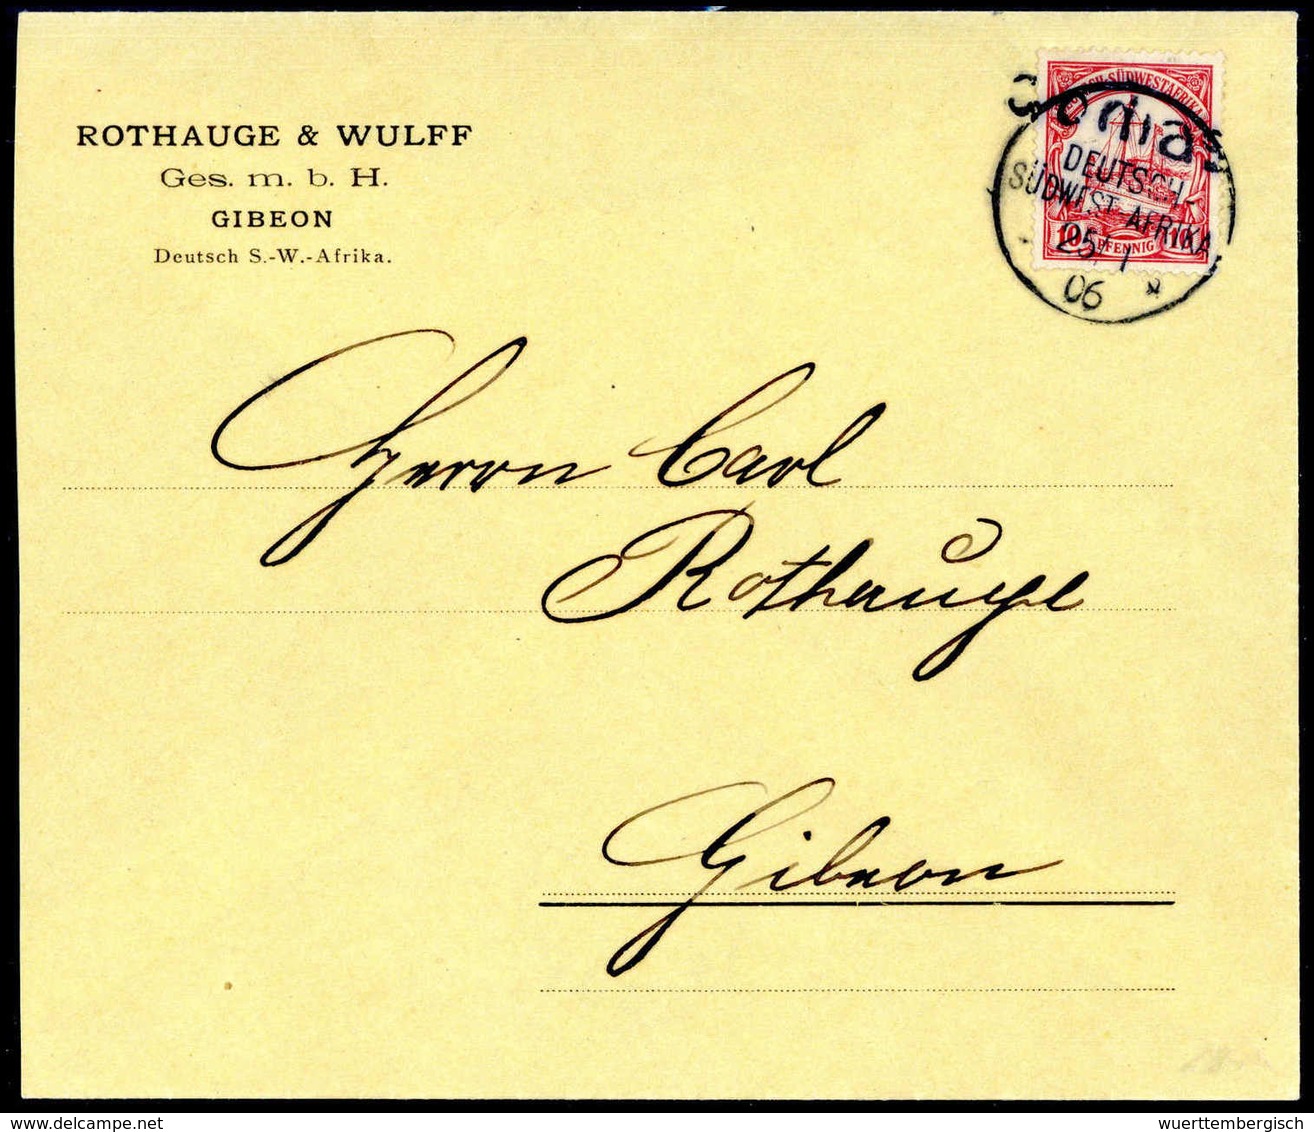 ROTHAUGE & WULFF
Ges. m. b. H.
GIBEON
Deutsch S.-W.-Afrika.
DEUTSCH-SÜDWESTAFRIKA
10 PFENNIG 10
DEUTSCH-
SÜDWEST-AFRIKA
25/1
06
Herrn Carl
Rothauge
Gibeon
delcampe.net
wuerttembergisch